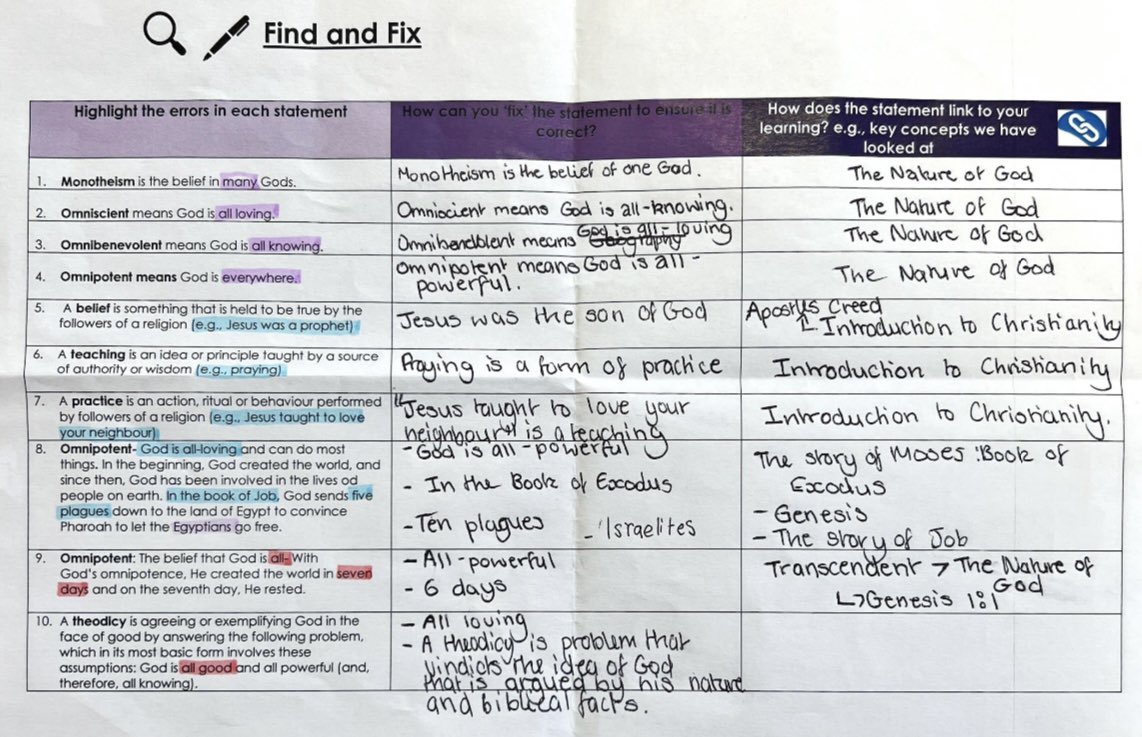 Find and Fix
Highlight the errors in each statement
How can you 'fix' the statement to ensure it is
correct?
How does the statement link to your
learning? e.g., key concepts we have
looked at
1. Monotheism is the belief in many Gods.
Monotheism is the belief of one God.
The Nature of God
2. Omniscient means God is all loving.
Omniscient means God is all-knowing.
The Nature of God
3. Omnibenevolent means God is all knowing.
God is all-loving
Omnibenevolent means
The Nature of God
4. Omnipotent means God is everywhere.
Omnipotent means God is all-
powerful.
The Nature of God
5. A belief is something that is held to be true by the
followers of a religion (e.g., Jesus was a prophet)
Jesus was the son of God
Apostles Creed
Introduction to Christianity
6. A teaching is an idea or principle taught by a source
of authority or wisdom (e.g., praying)
Praying is a form of practice
Introduction to Christianity
7. A practice is an action, ritual or behaviour performed
by followers of a religion (e.g., Jesus taught to love
your neighbour)
"Jesus taught to love your
neighbour" is a teaching
Introduction to Christianity.
8. Omnipotent- God is all-loving and can do most
things. In the beginning, God created the world, and
since then, God has been involved in the lives od
people on earth. In the book of Job, God sends five
plagues down to the land of Egypt to convince
Pharoah to let the Egyptians go free.
- God is all-powerful
- In the Book of Exodus
- Ten plagues - Israelites
The story of Moses: Book of
Exodus
- Genesis
- The story of Job
9. Omnipotent: The belief that God is all- With
God's omnipotence, He created the world in seven
days and on the seventh day, He rested.
- All-powerful
- 6 days
Transcendent → The Nature of
God
↳ Genesis 1:1
10. A theodicy is agreeing or exemplifying God in the
face of good by answering the following problem,
which in its most basic form involves these
assumptions: God is all good and all powerful (and,
therefore, all knowing).
- All loving
- A theodicy is problem that
the idea of God
that is argued by his nature
and biblical facts.